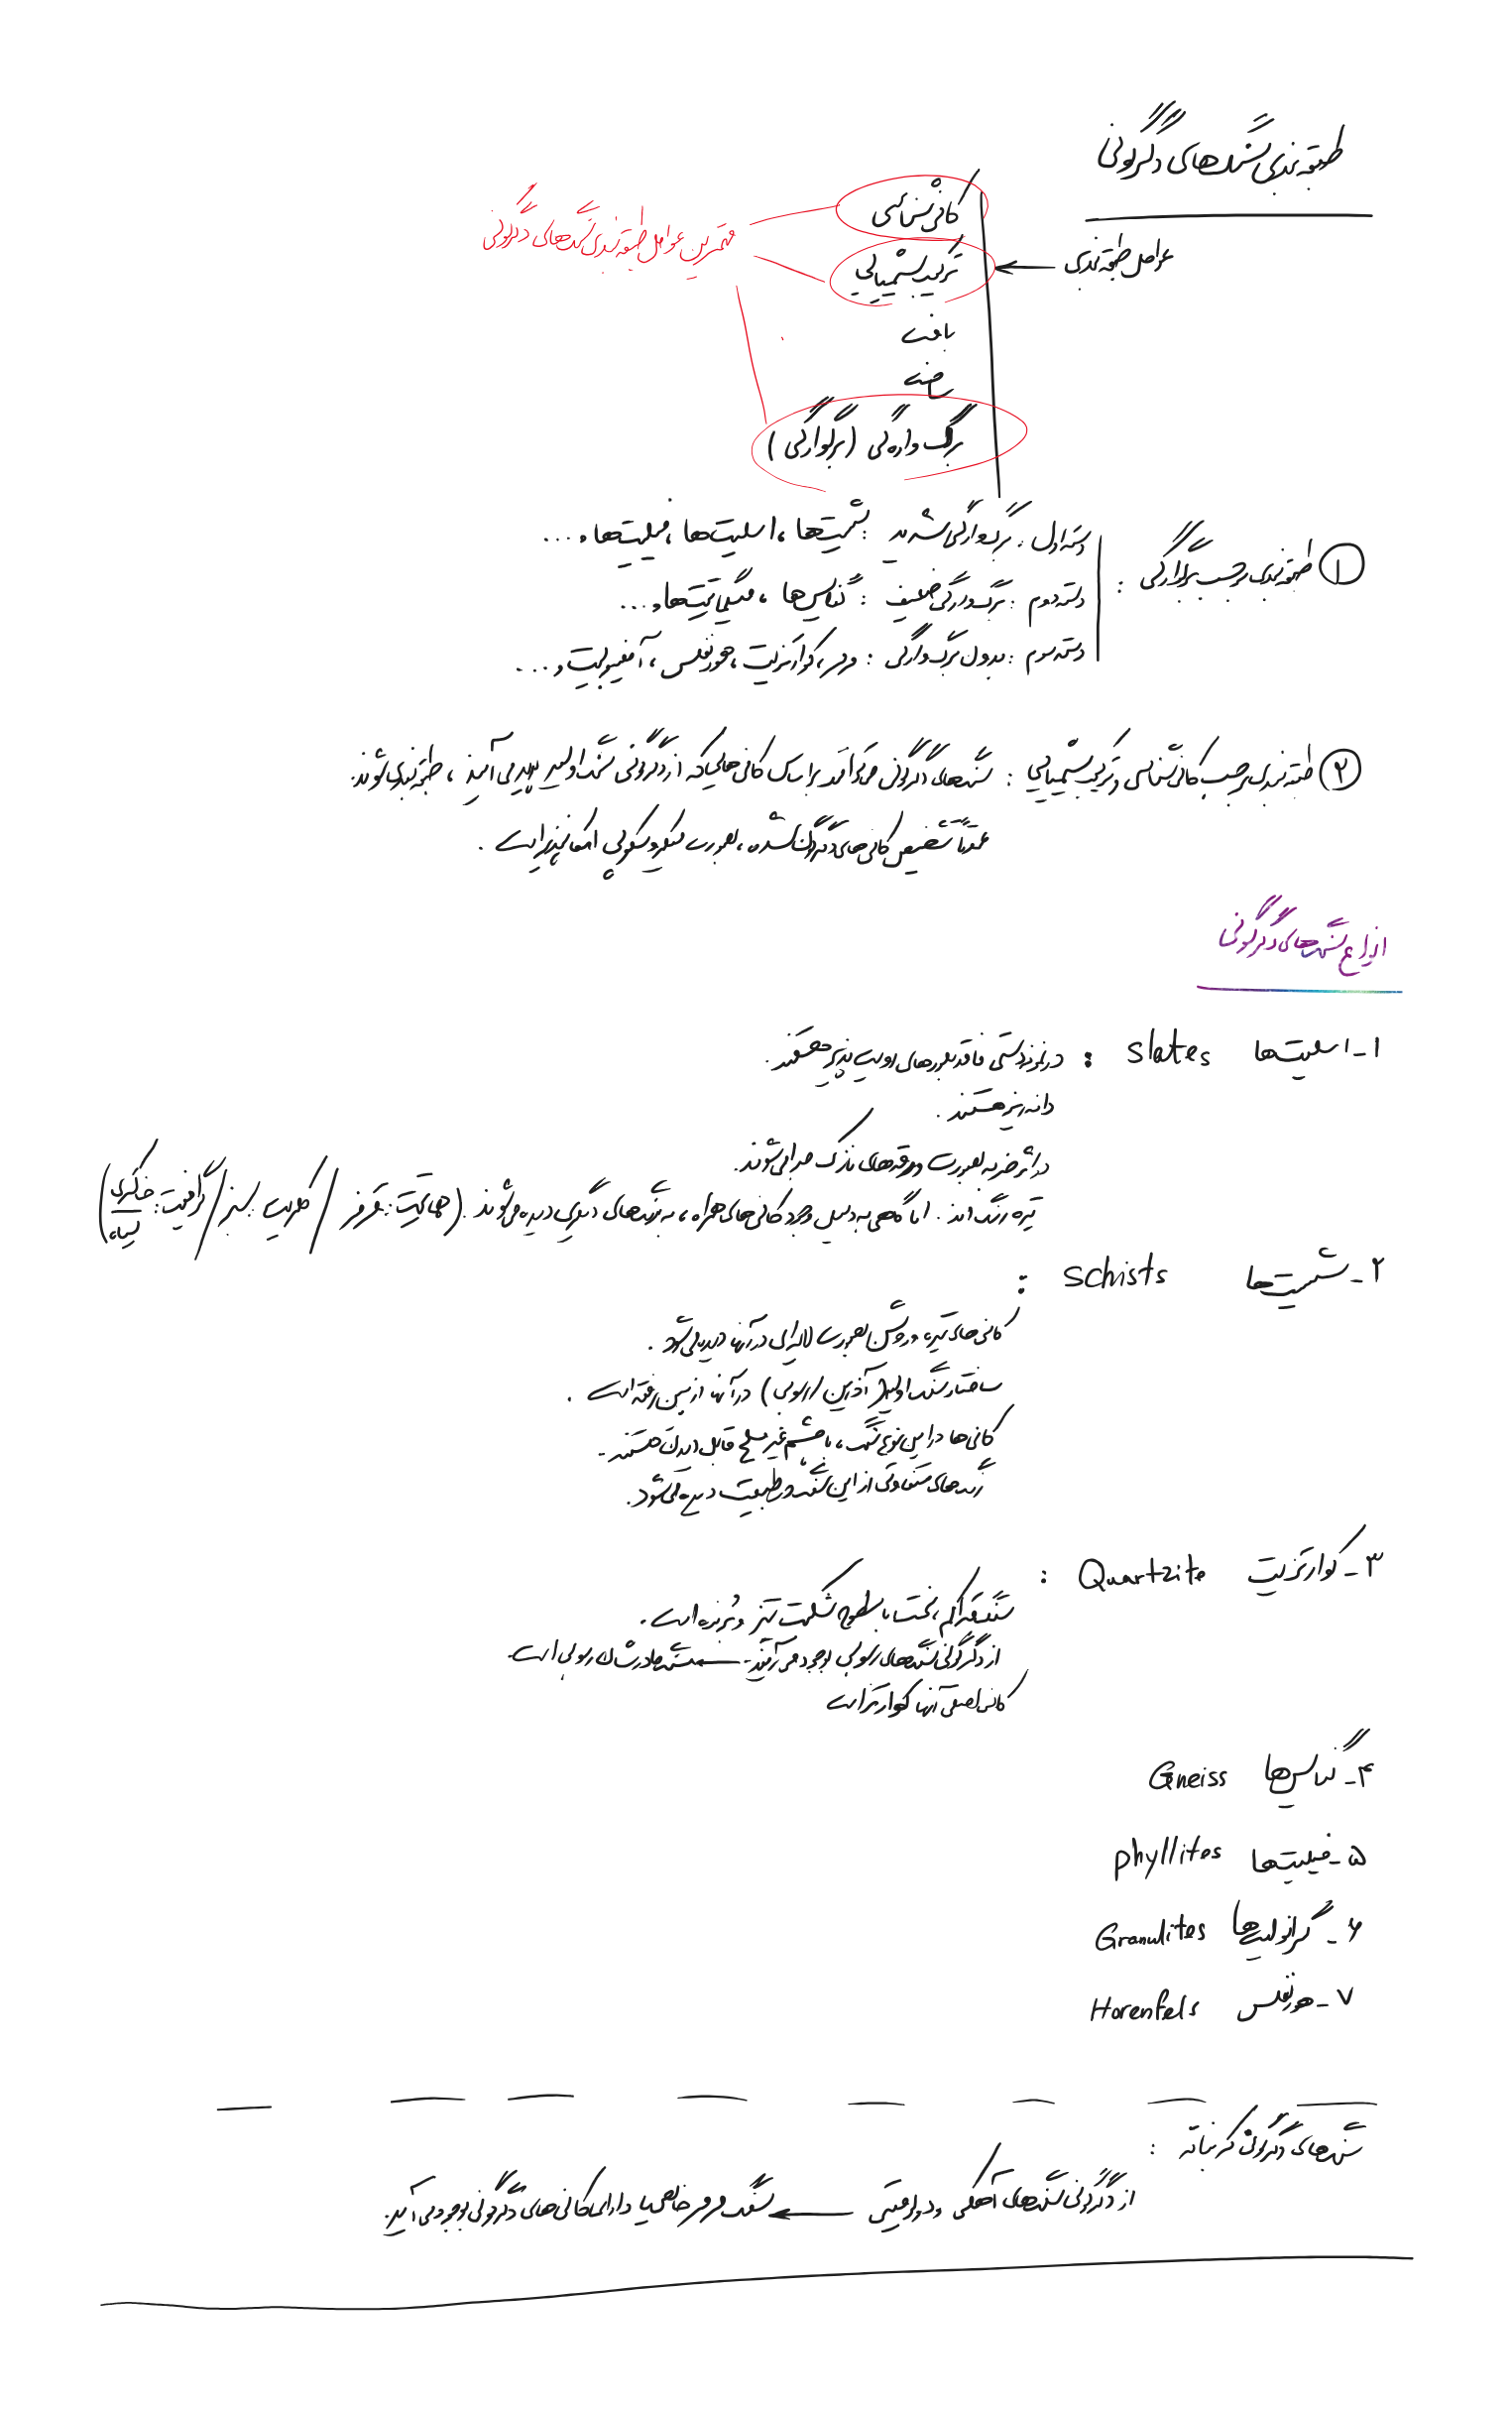 طبقه‌بندی سنگ‌های دگرگونی
عوامل طبقه‌بندی
کانی‌شناسی
ترکیب شیمیایی
بافت
ساخت
برگ وارگی (برگوارگی)
مهمترین عوامل طبقه‌بندی سنگ‌های دگرگونی
① طبقه‌بندی برحسب برگوارگی :
دسته اول : برگ‌وارگی شدید : شیست‌ها ، اسلیت‌ها ، فیلیت‌ها و ...
دسته دوم : برگ‌وارگی ضعیف : گنایس‌ها ، میگماتیت‌ها و ...
دسته سوم : بدون برگ‌وارگی : مرمر ، کوارتزیت ، هورنفلس ، آمفیبولیت و ...
② طبقه‌بندی برحسب کانی‌شناسی و ترکیب شیمیایی : سنگ‌های دگرگونی می‌توانند براساس کانی‌هایی که از دگرگونی سنگ اولیه پدید می‌آیند ، طبقه‌بندی شوند.
عمدتاً تشخیص کانی‌های دگرگون شده ، بصورت میکروسکوپی امکانپذیر است .
انواع سنگ‌های دگرگونی
۱- اسلیت‌ها Slates : در نمونه دستی فاقد بلورهای رویت پذیر هستند .
دانه ریز هستند .
در اثر ضربه بصورت ورقه‌های نازک جدا می‌شوند.
تیره رنگ‌اند . اما گاهی به دلیل وجود کانی‌های همراه ، به رنگ‌های دیگری دیده می‌شوند . (هماتیت : قرمز / کلریت : سبز / گرافیت : خاکستری سیاه)
۲- شیست‌ها Schists :
کانی‌های تیره و روشن بصورت لایه‌ای در آنها دیده می‌شود .
ساختار سنگ اولیه (آذرین / رسوبی) در آنها از بین رفته است .
کانی‌ها در این نوع سنگ ، با چشم غیر مسلح قابل دیدن هستند .
رده‌های متفاوتی از این سنگ در طبیعت دیده می‌شود .
۳- کوارتزیت Quartzite :
سنگ متراکم ، سخت با سطوح شکست تیز و برنده است .
از دگرگونی سنگ‌های رسوبی بوجود می‌آیند . ← سنگ مادرشان رسوبی است .
کانی اصلی آنها کوارتز است
۴- گنایس‌ها Gneiss
۵- فیلیت‌ها phyllites
۶- گرانولیت‌ها Granulites
۷- هورنفلس Horenfels
سنگ‌های دگرگون کربناته :
از دگرگونی سنگ‌های آهکی و دولومیتی ← سنگ مرمر خالص یا دارای کانی‌های دگرگونی بوجود می‌آید .